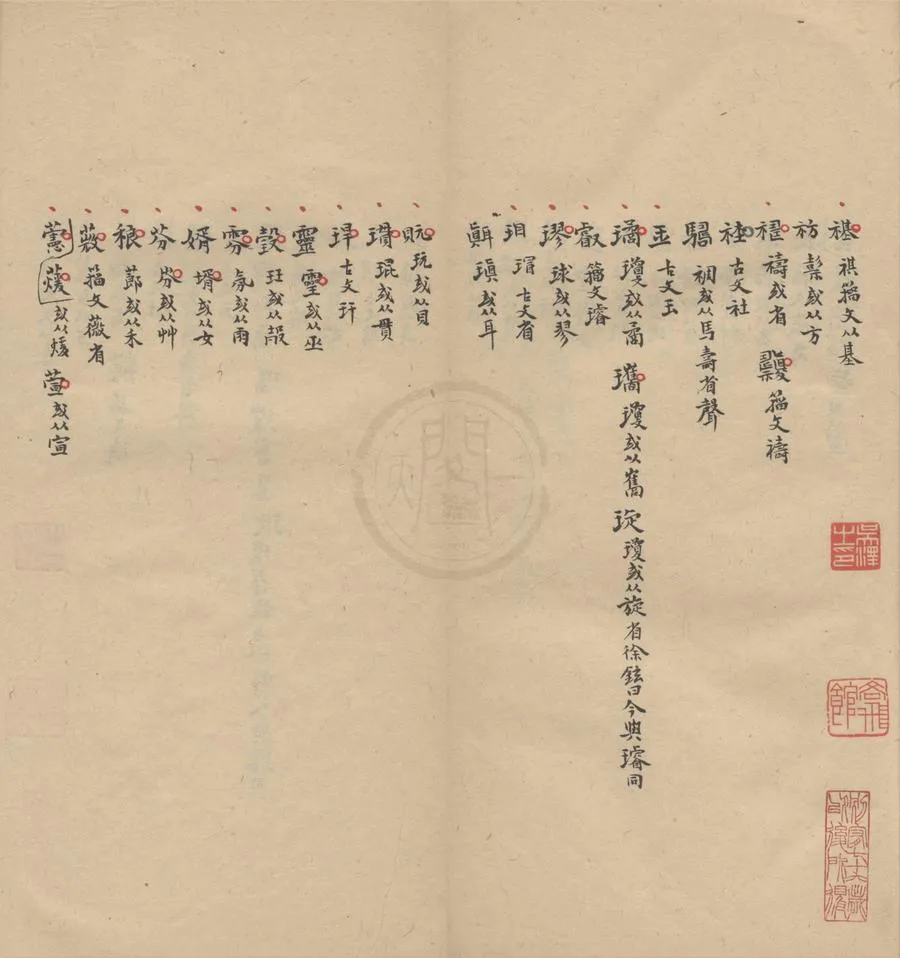 禥 祺籀文从基
祊 𥛱或从方
禱或省 籀文禱
𥙭 古文社
禂或从馬壽省聲
𤣪 古文玉
璚 瓊或从矞 瓗 瓊或从巂 琁 瓊或从旋省徐鉉曰今與璿同
叡 籀文璿
璆 球或从翏
瑁 古文省
䏁 瑱或从耳
貦 玩或从貝
瑻 琨或从貫
𤥚 古文玕
靈 𤫊或从巫
瑴 玨或从㱿
雰 氛或从雨
婿 壻或从女
芬 𡴞或从艸
稂 蓈或从禾
籀文薇省
藼 蕿 或从煖 萱 或从宣